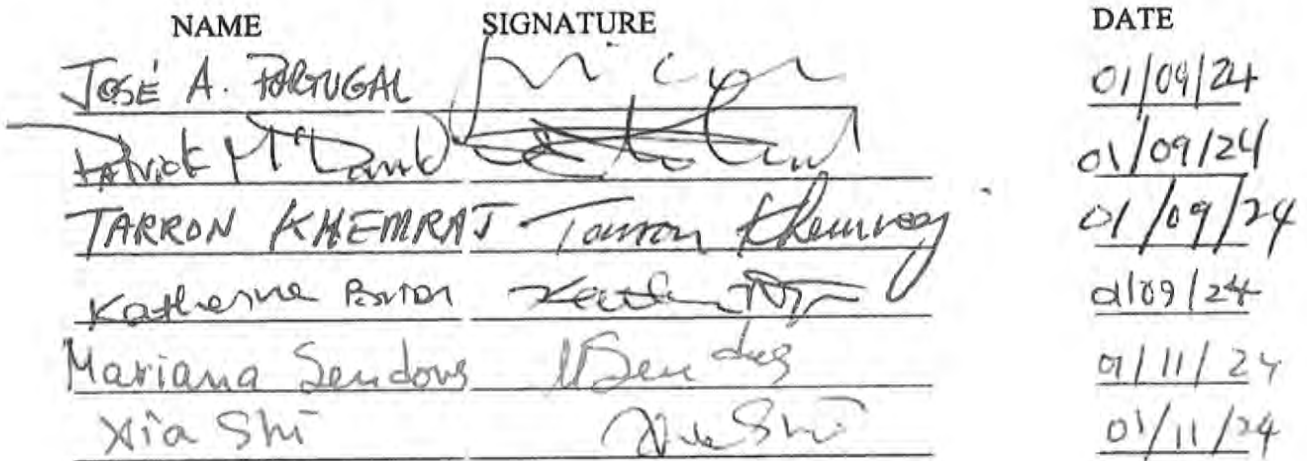 NAME SIGNATURE DATE
JOSÉ A. PORTUGAL 01/09/24
Patrick McDonald 01/09/24
TARRON KHEMRAJ Tarron Khemraj 01/09/24
Katherine 01/09/24
Mariana Sendova 01/11/24
Xia Shi Xia Shi 01/11/24